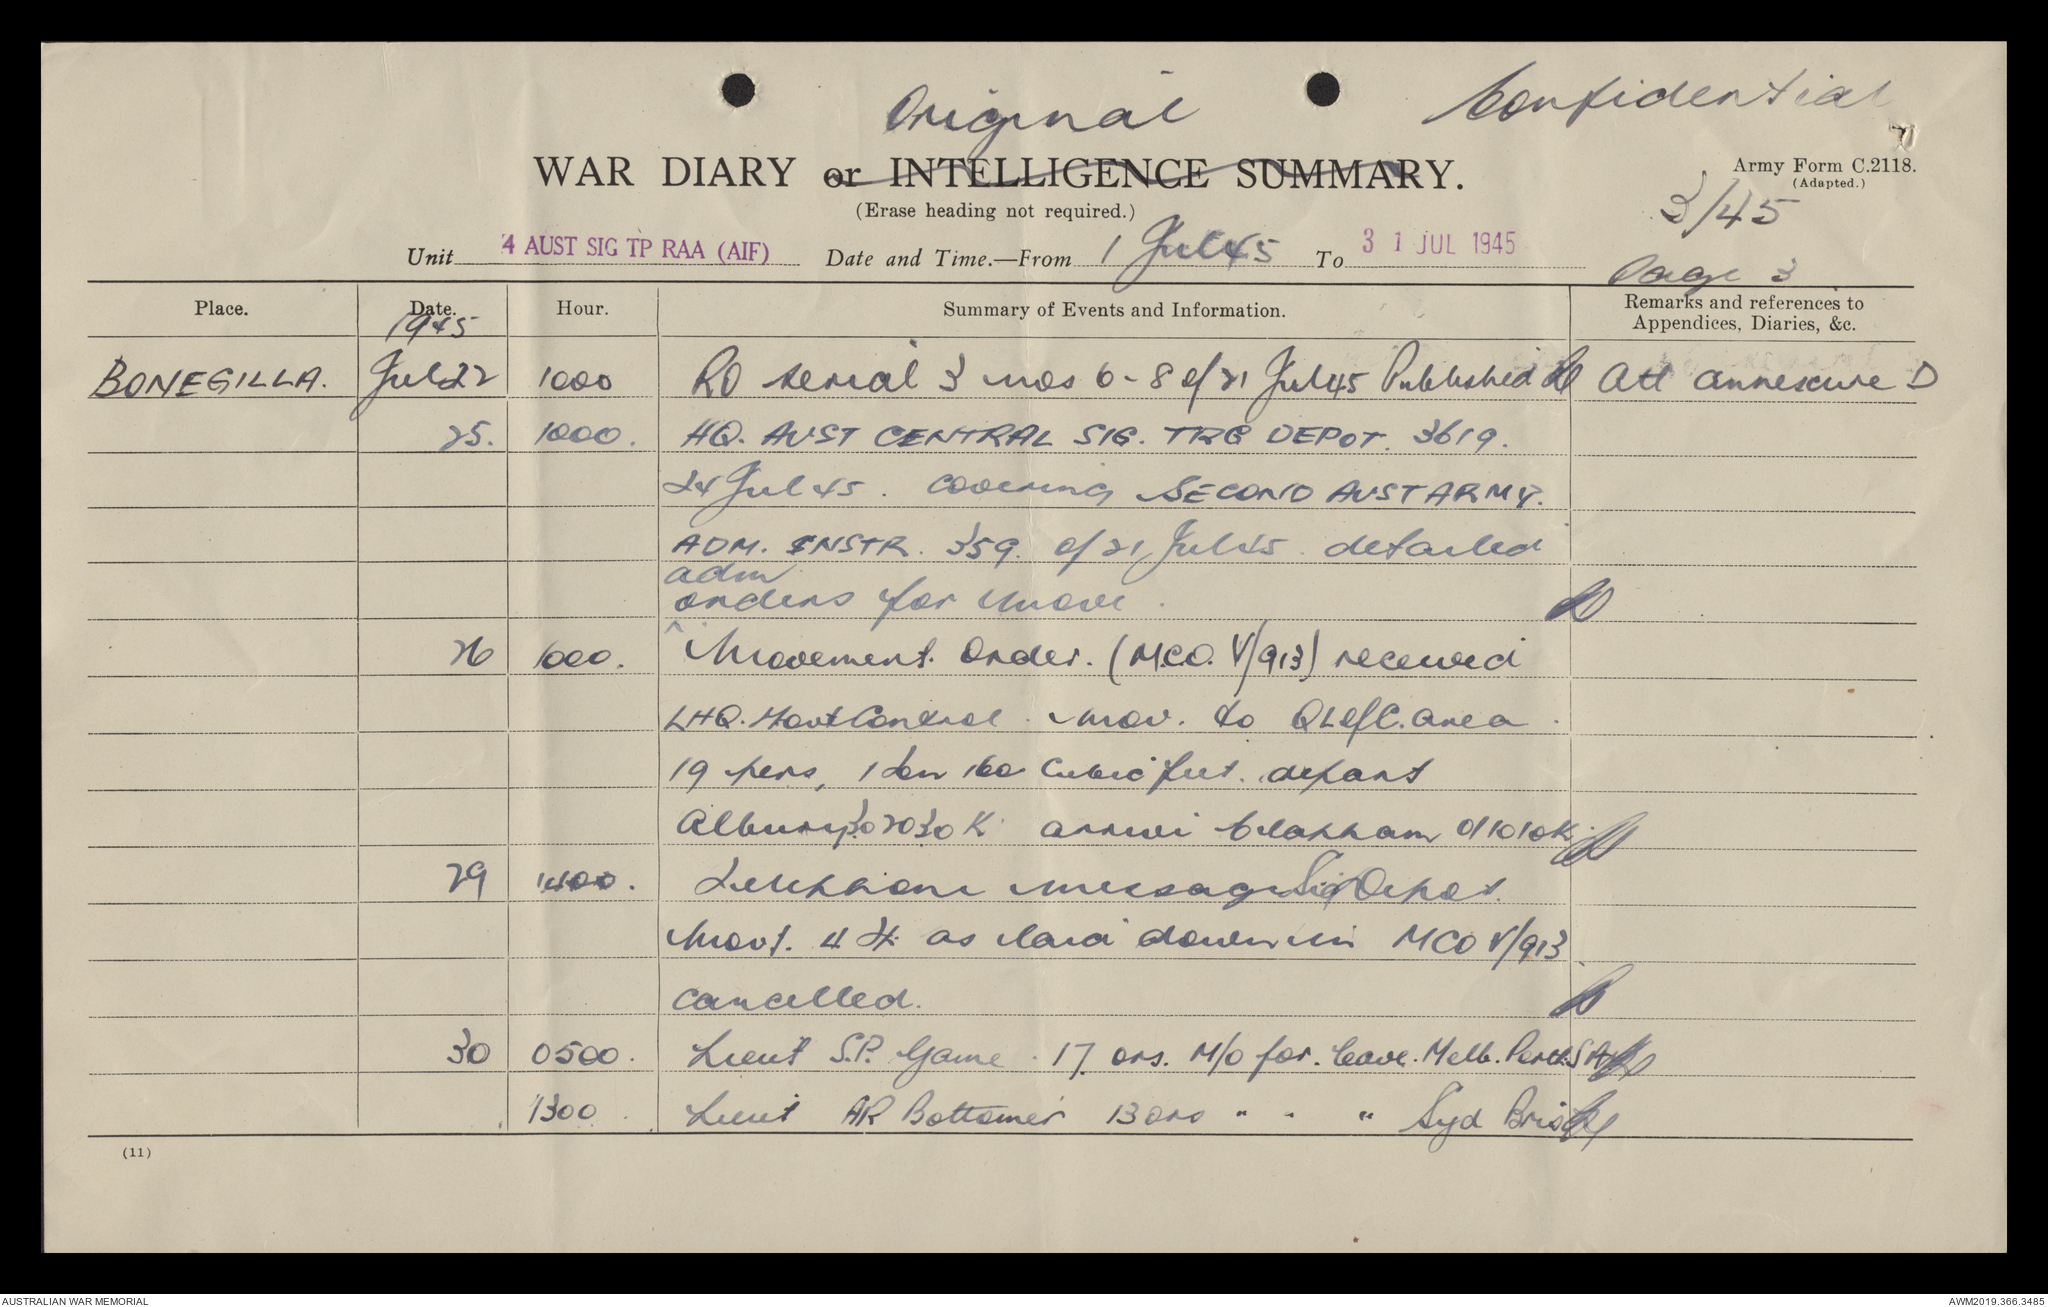 Original
Confidential
WAR DIARY or INTELLIGENCE SUMMARY.
Army Form C.2118.
(Adapted.)
(Erase heading not required.)
3/45
Unit 4 AUST SIG TP RAA (AIF) Date and Time.—From 1 Jul 45 To 31 JUL 1945
Page 3
Place. Date. Hour. Summary of Events and Information. Remarks and references to
Appendices, Diaries, &c.
1945
BONEGILLA. Jul 22 1000 RO serial 3 nos 6-8 of 21 Jul 45 Published Att annexure D
25. 1000. HQ. AUST CENTRAL SIG. TRG DEPOT. 3619.
24 Jul 45. covering SECOND AUST ARMY.
ADM. INSTR. 359. of 21 Jul 45. detailed
adm
orders for move.
26 1000. Movement. Order. (M.C.O. V/913) received
LHQ. Movt Control. mov. to QLofC. area.
19 pers, 1 ton 160 Cubic feet. depart
Albury 302030K arrive Clapham 011010K
29 1400. Telephone message Sig Depot.
Movt. 4 Tp. as laid down in MCO V/913
cancelled.
30 0500. Lieut S.P. Game. 17 ors. M/O for. leave. Melb. Perth. SA
1300 Lieut AR Bottomer 13 ors " " " Syd Bris
(11)
AUSTRALIAN WAR MEMORIAL
AWM2019.366.3485